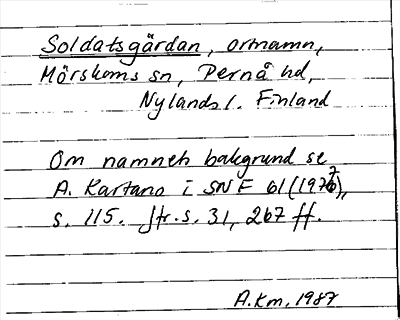 Soldatsgärdan, ortnamn,
Mörskoms sn, Pernå hd,
Nylands l. Finland
Om namnets bakgrund se
A. Kartano i SNF 61 (1977),
s. 115. Jfr. s. 31, 267 ff.
A.Km, 1987